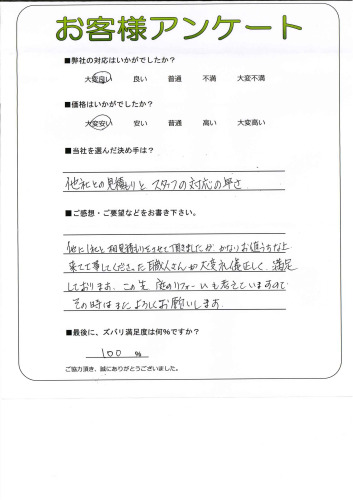 お客様アンケート
■弊社の対応はいかがでしたか？
大変良い 良い 普通 不満 大変不満
■価格はいかがでしたか？
大変安い 安い 普通 高い 大変高い
■当社を選んだ決め手は？
他社との見積もりと スタッフの対応の早さ
■ご感想・ご要望などをお書き下さい。
他に1社と相見積もりをさせて頂きましたが かなりお値うちな上
来て工事してくださった職人さんが大変礼儀正しく 満足
しております. この先 庭のリフォームも考えていますので
その時はまたよろしくお願いします.
■最後に、ズバリ満足度は何%ですか？
100 %
ご協力頂き、誠にありがとうございました。